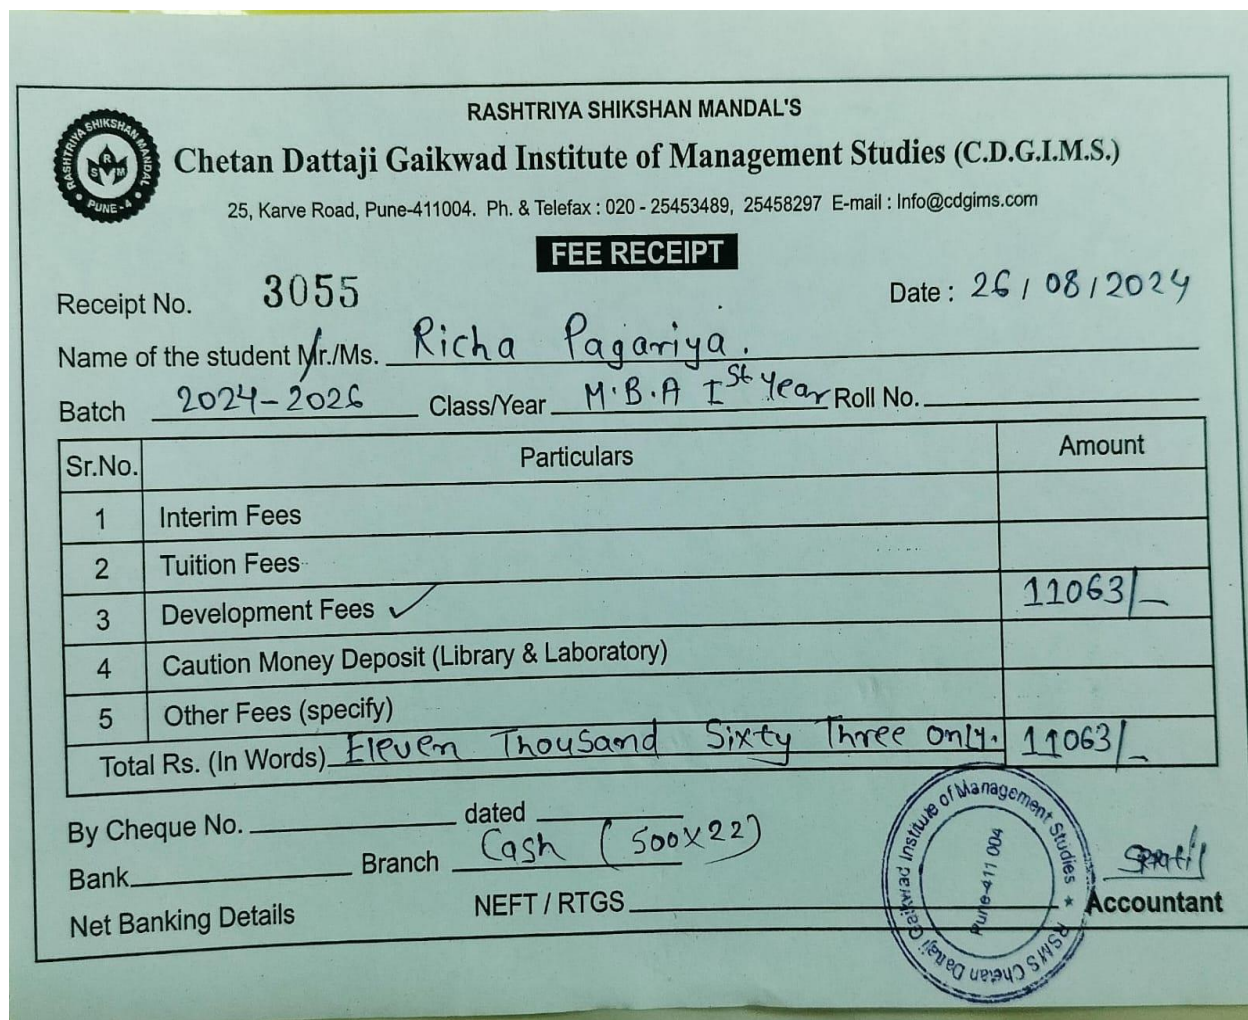 RASHTRIYA SHIKSHAN MANDAL'S
RASHTRIYA SHIKSHAN MANDAL
PUNE-4
R
S M
Chetan Dattaji Gaikwad Institute of Management Studies (C.D.G.I.M.S.)
25, Karve Road, Pune-411004. Ph. & Telefax : 020 - 25453489, 25458297 E-mail : Info@cdgims.com
FEE RECEIPT
Receipt No. 3055 Date : 26/08/2024
Name of the student Mr./Ms. Richa Pagariya.
Batch 2024-2026 Class/Year M.B.A Ist Year Roll No.
Sr.No. Particulars Amount
1 Interim Fees
2 Tuition Fees
3 Development Fees ✓ 11063/-
4 Caution Money Deposit (Library & Laboratory)
5 Other Fees (specify)
Total Rs. (In Words) Eleven Thousand Sixty Three only. 11063/-
By Cheque No. dated
Bank Branch Cash (500x22)
Net Banking Details NEFT / RTGS
Accountant
RSM'S Chetan Dattaji Gaikwad Institute of Management Studies ★
Pune-411 004